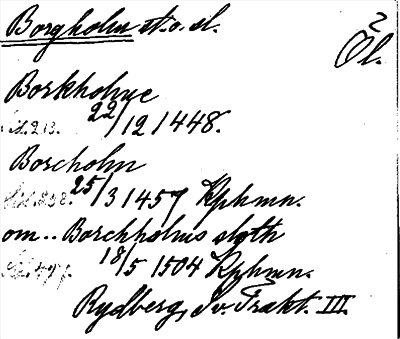 Borgholm st. o. sl.
2
Öl.
Borkholme
Sid. 213. 22/12 1448.
Borcholm
Sid. 298. 25/3 1457 Kphmn.
om.. Borchholms sloth
Sid. 497. 18/5 1504 Kphmn.
Rydberg, Sv. Trakt. III.